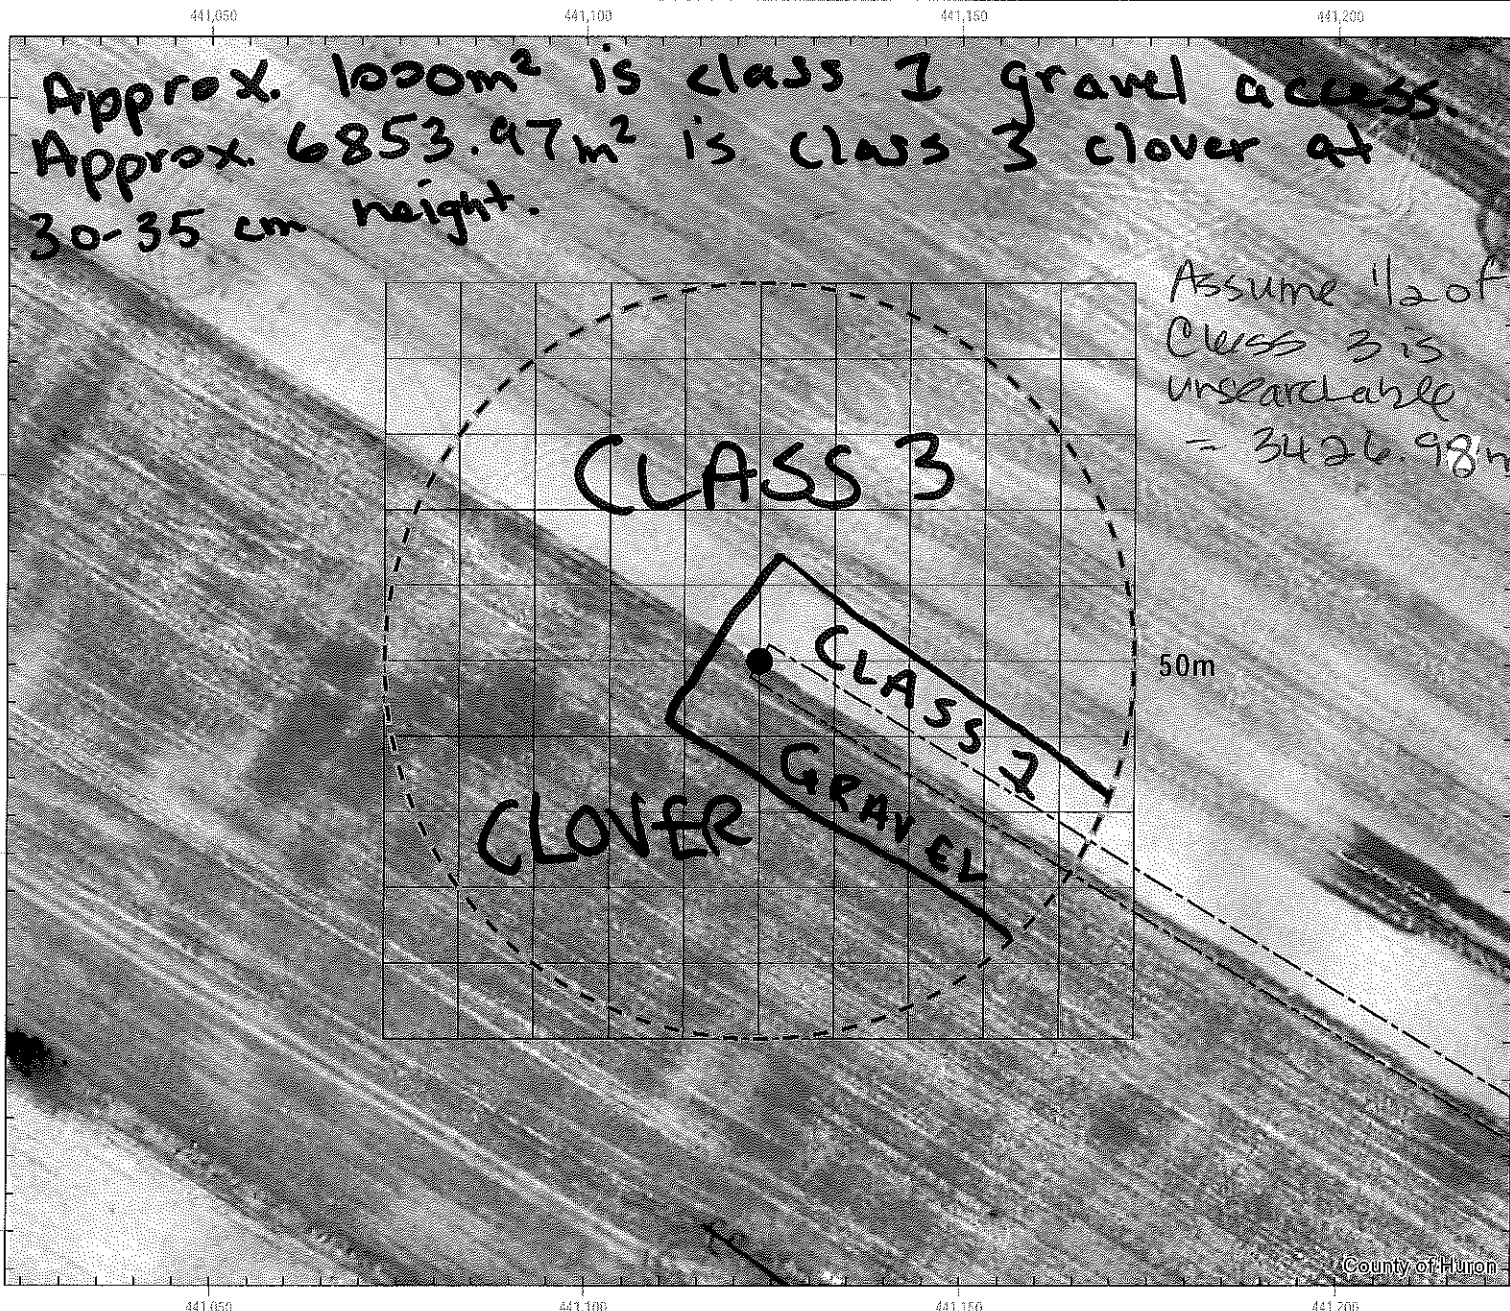 441,050 441,100 441,150 441,200
Approx. 1000m² is class 1 gravel access.
Approx. 6853.97m² is class 3 clover at
30-35 cm height.
Assume 1/2 of
Class 3 is
unsearchable
= 3426.98m
CLASS 3
CLASS 1
50m
GRAVEL
CLOVER
County of Huron
441,050 441,100 441,150 441,200